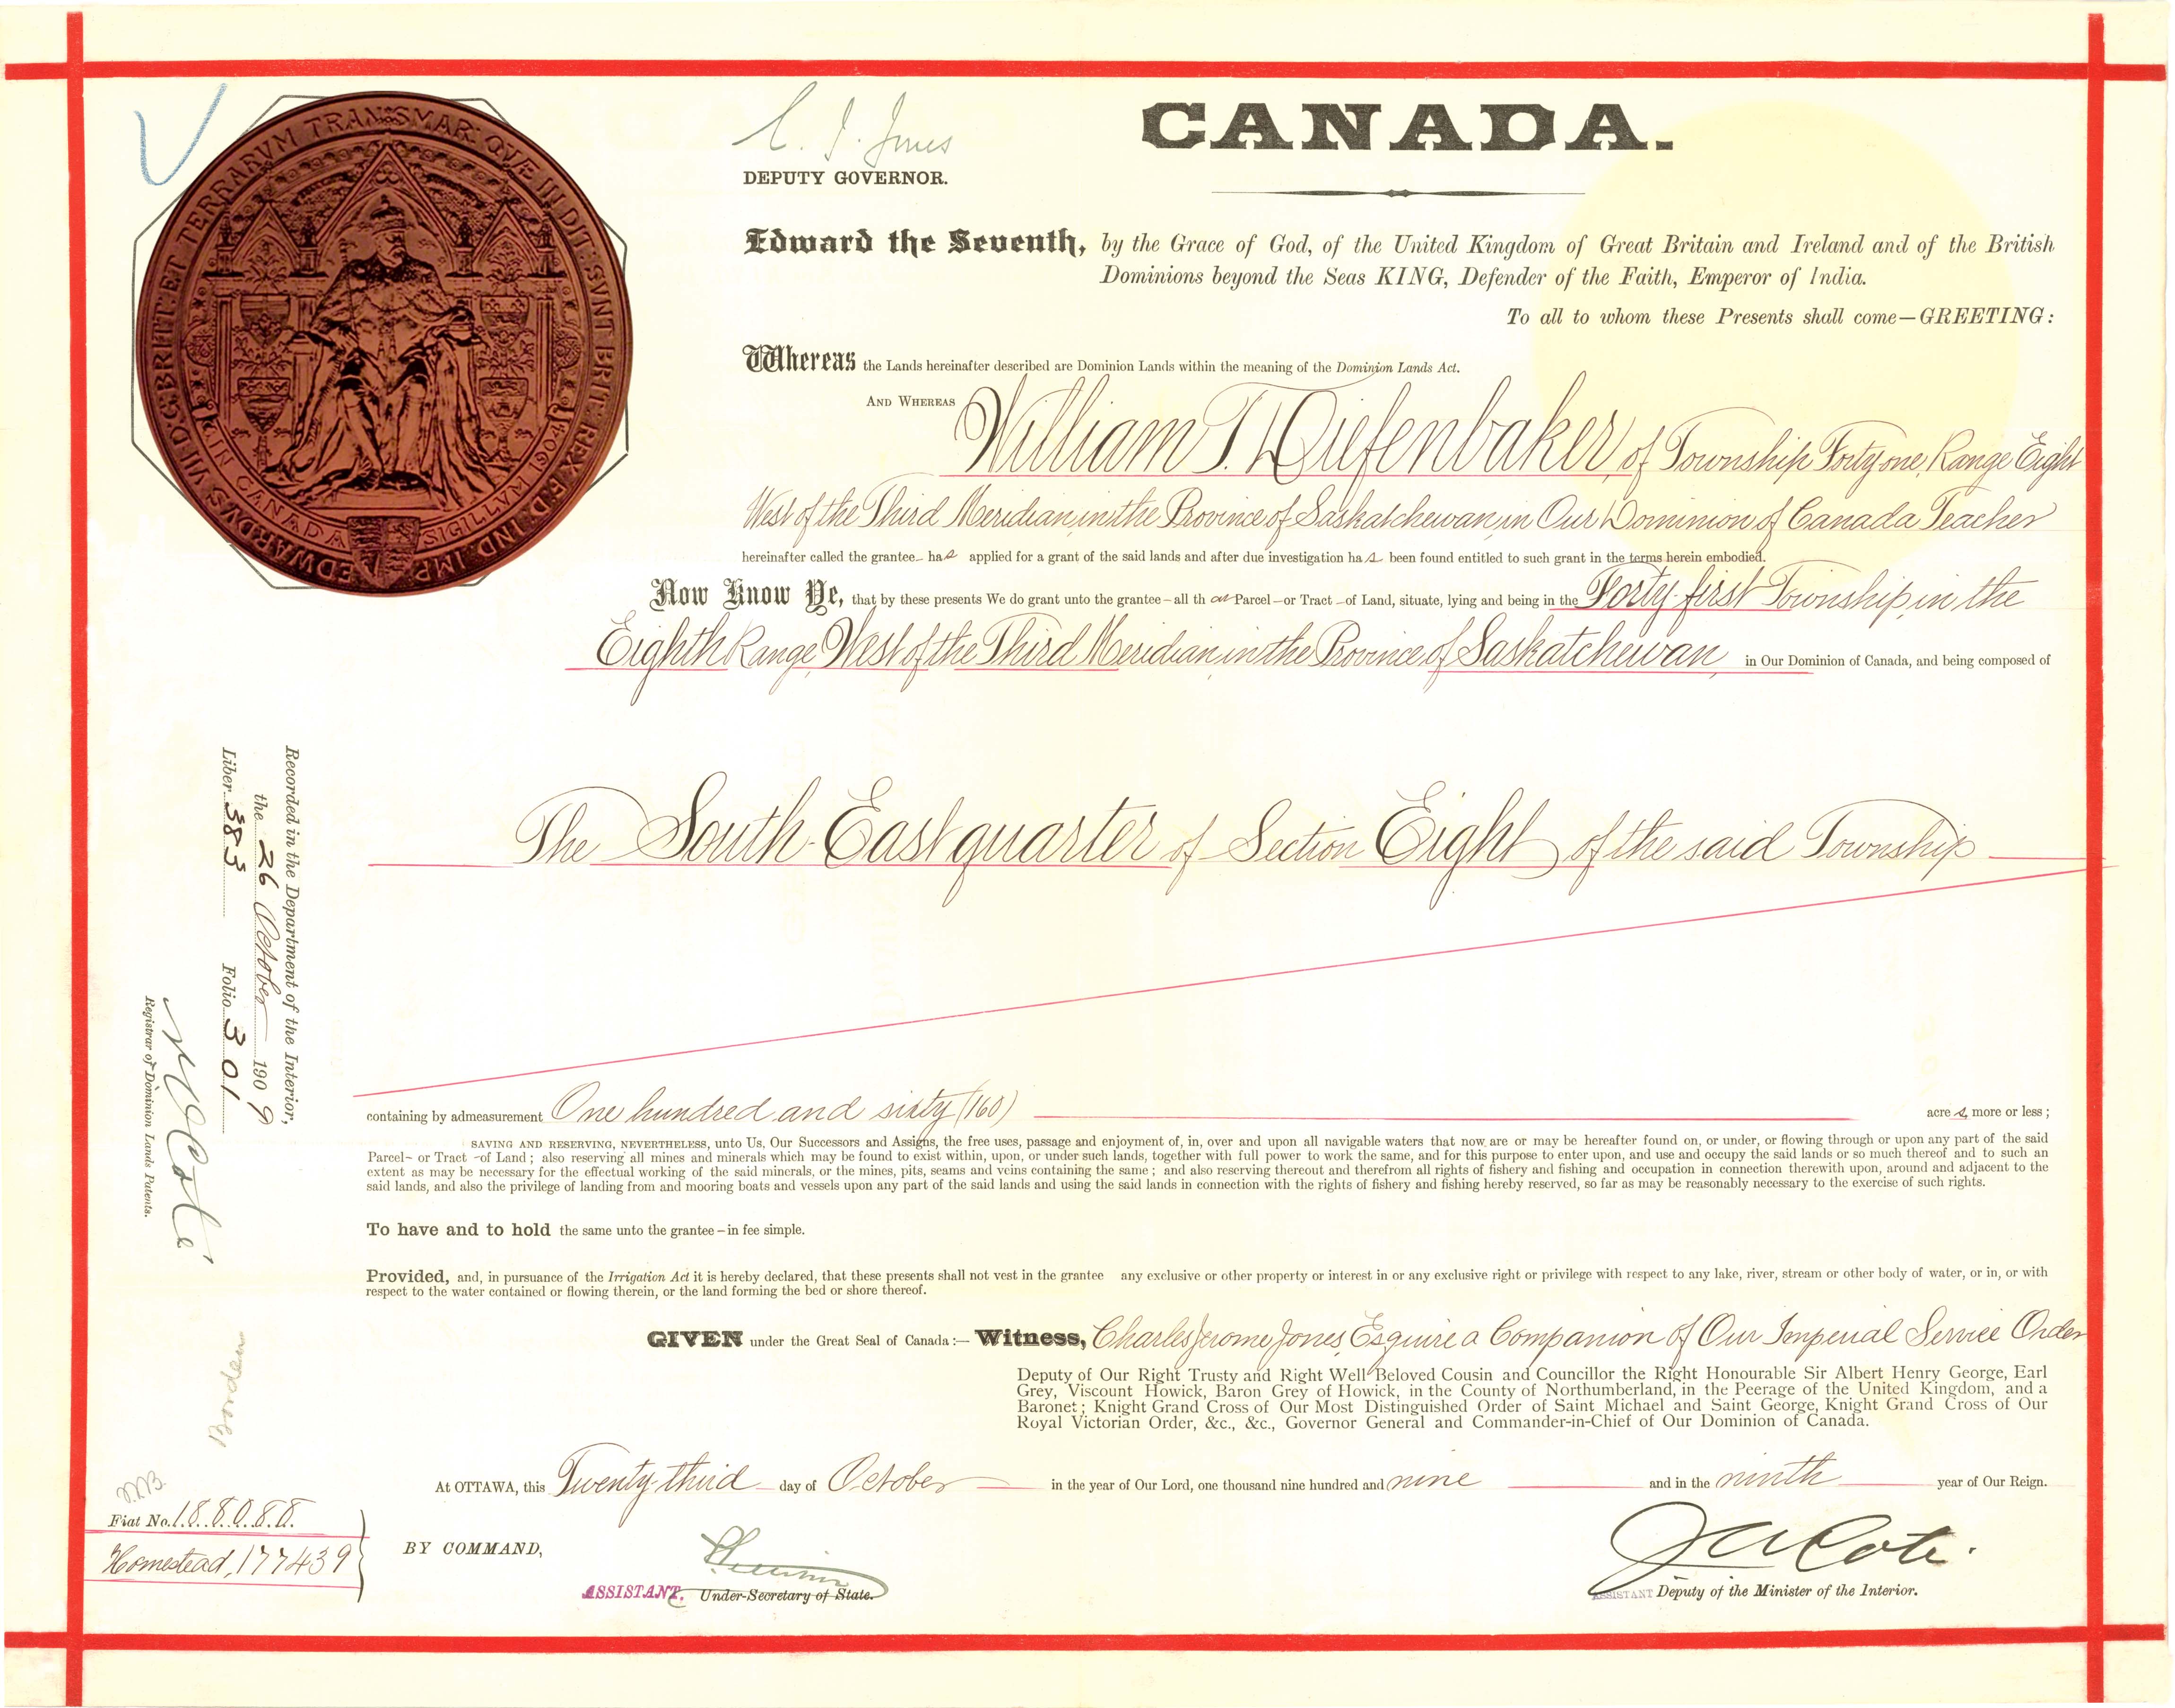 EDWARDVS VII D:G:BRITT:ET TERRARVM TRANSMAR: QVÆ IN DIT: SVNT BRIT: REX F:D: IND: IMP:
IN CANADA SIGILLVM 1904
C. J. Jones
DEPUTY GOVERNOR.
CANADA.
Edward the Seventh, by the Grace of God, of the United Kingdom of Great Britain and Ireland and of the British
Dominions beyond the Seas KING, Defender of the Faith, Emperor of India.
To all to whom these Presents shall come—GREETING:
Whereas the Lands hereinafter described are Dominion Lands within the meaning of the Dominion Lands Act.
AND WHEREAS William T. Diefenbaker, of Township Forty one, Range Eight
West of the Third Meridian, in the Province of Saskatchewan, in Our Dominion of Canada Teacher
hereinafter called the grantee— has applied for a grant of the said lands and after due investigation has been found entitled to such grant in the terms herein embodied.
Now Know Ye, that by these presents We do grant unto the grantee—all that Parcel—or Tract—of Land, situate, lying and being in the Forty-first Township, in the
Eighth Range, West of the Third Meridian, in the Province of Saskatchewan, in Our Dominion of Canada, and being composed of
The South-East quarter of Section Eight of the said Township
containing by admeasurement One hundred and sixty (160) acres, more or less;
SAVING AND RESERVING, NEVERTHELESS, unto Us, Our Successors and Assigns, the free uses, passage and enjoyment of, in, over and upon all navigable waters that now are or may be hereafter found on, or under, or flowing through or upon any part of the said
Parcel— or Tract —of Land; also reserving all mines and minerals which may be found to exist within, upon, or under such lands, together with full power to work the same, and for this purpose to enter upon, and use and occupy the said lands or so much thereof and to such an
extent as may be necessary for the effectual working of the said minerals, or the mines, pits, seams and veins containing the same; and also reserving thereout and therefrom all rights of fishery and fishing and occupation in connection therewith upon, around and adjacent to the
said lands, and also the privilege of landing from and mooring boats and vessels upon any part of the said lands and using the said lands in connection with the rights of fishery and fishing hereby reserved, so far as may be reasonably necessary to the exercise of such rights.
To have and to hold the same unto the grantee—in fee simple.
Provided, and, in pursuance of the Irrigation Act it is hereby declared, that these presents shall not vest in the grantee any exclusive or other property or interest in or any exclusive right or privilege with respect to any lake, river, stream or other body of water, or in, or with
respect to the water contained or flowing therein, or the land forming the bed or shore thereof.
GIVEN under the Great Seal of Canada:— Witness, Charles Jerome Jones, Esquire a Companion of Our Imperial Service Order
Deputy of Our Right Trusty and Right Well Beloved Cousin and Councillor the Right Honourable Sir Albert Henry George, Earl
Grey, Viscount Howick, Baron Grey of Howick, in the County of Northumberland, in the Peerage of the United Kingdom, and a
Baronet; Knight Grand Cross of Our Most Distinguished Order of Saint Michael and Saint George, Knight Grand Cross of Our
Royal Victorian Order, &c., &c., Governor General and Commander-in-Chief of Our Dominion of Canada.
At OTTAWA, this Twenty-third day of October in the year of Our Lord, one thousand nine hundred and nine and in the ninth year of Our Reign.
BY COMMAND,
ASSISTANT. Under-Secretary of State.
J A Coté.
ASSISTANT Deputy of the Minister of the Interior.
Recorded in the Department of the Interior,
the 26 October 1909
Liber 383 Folio 301
N O Coté
Registrar of Dominion Lands Patents.
Borden
Fiat No. 188088.
Homestead, 177439